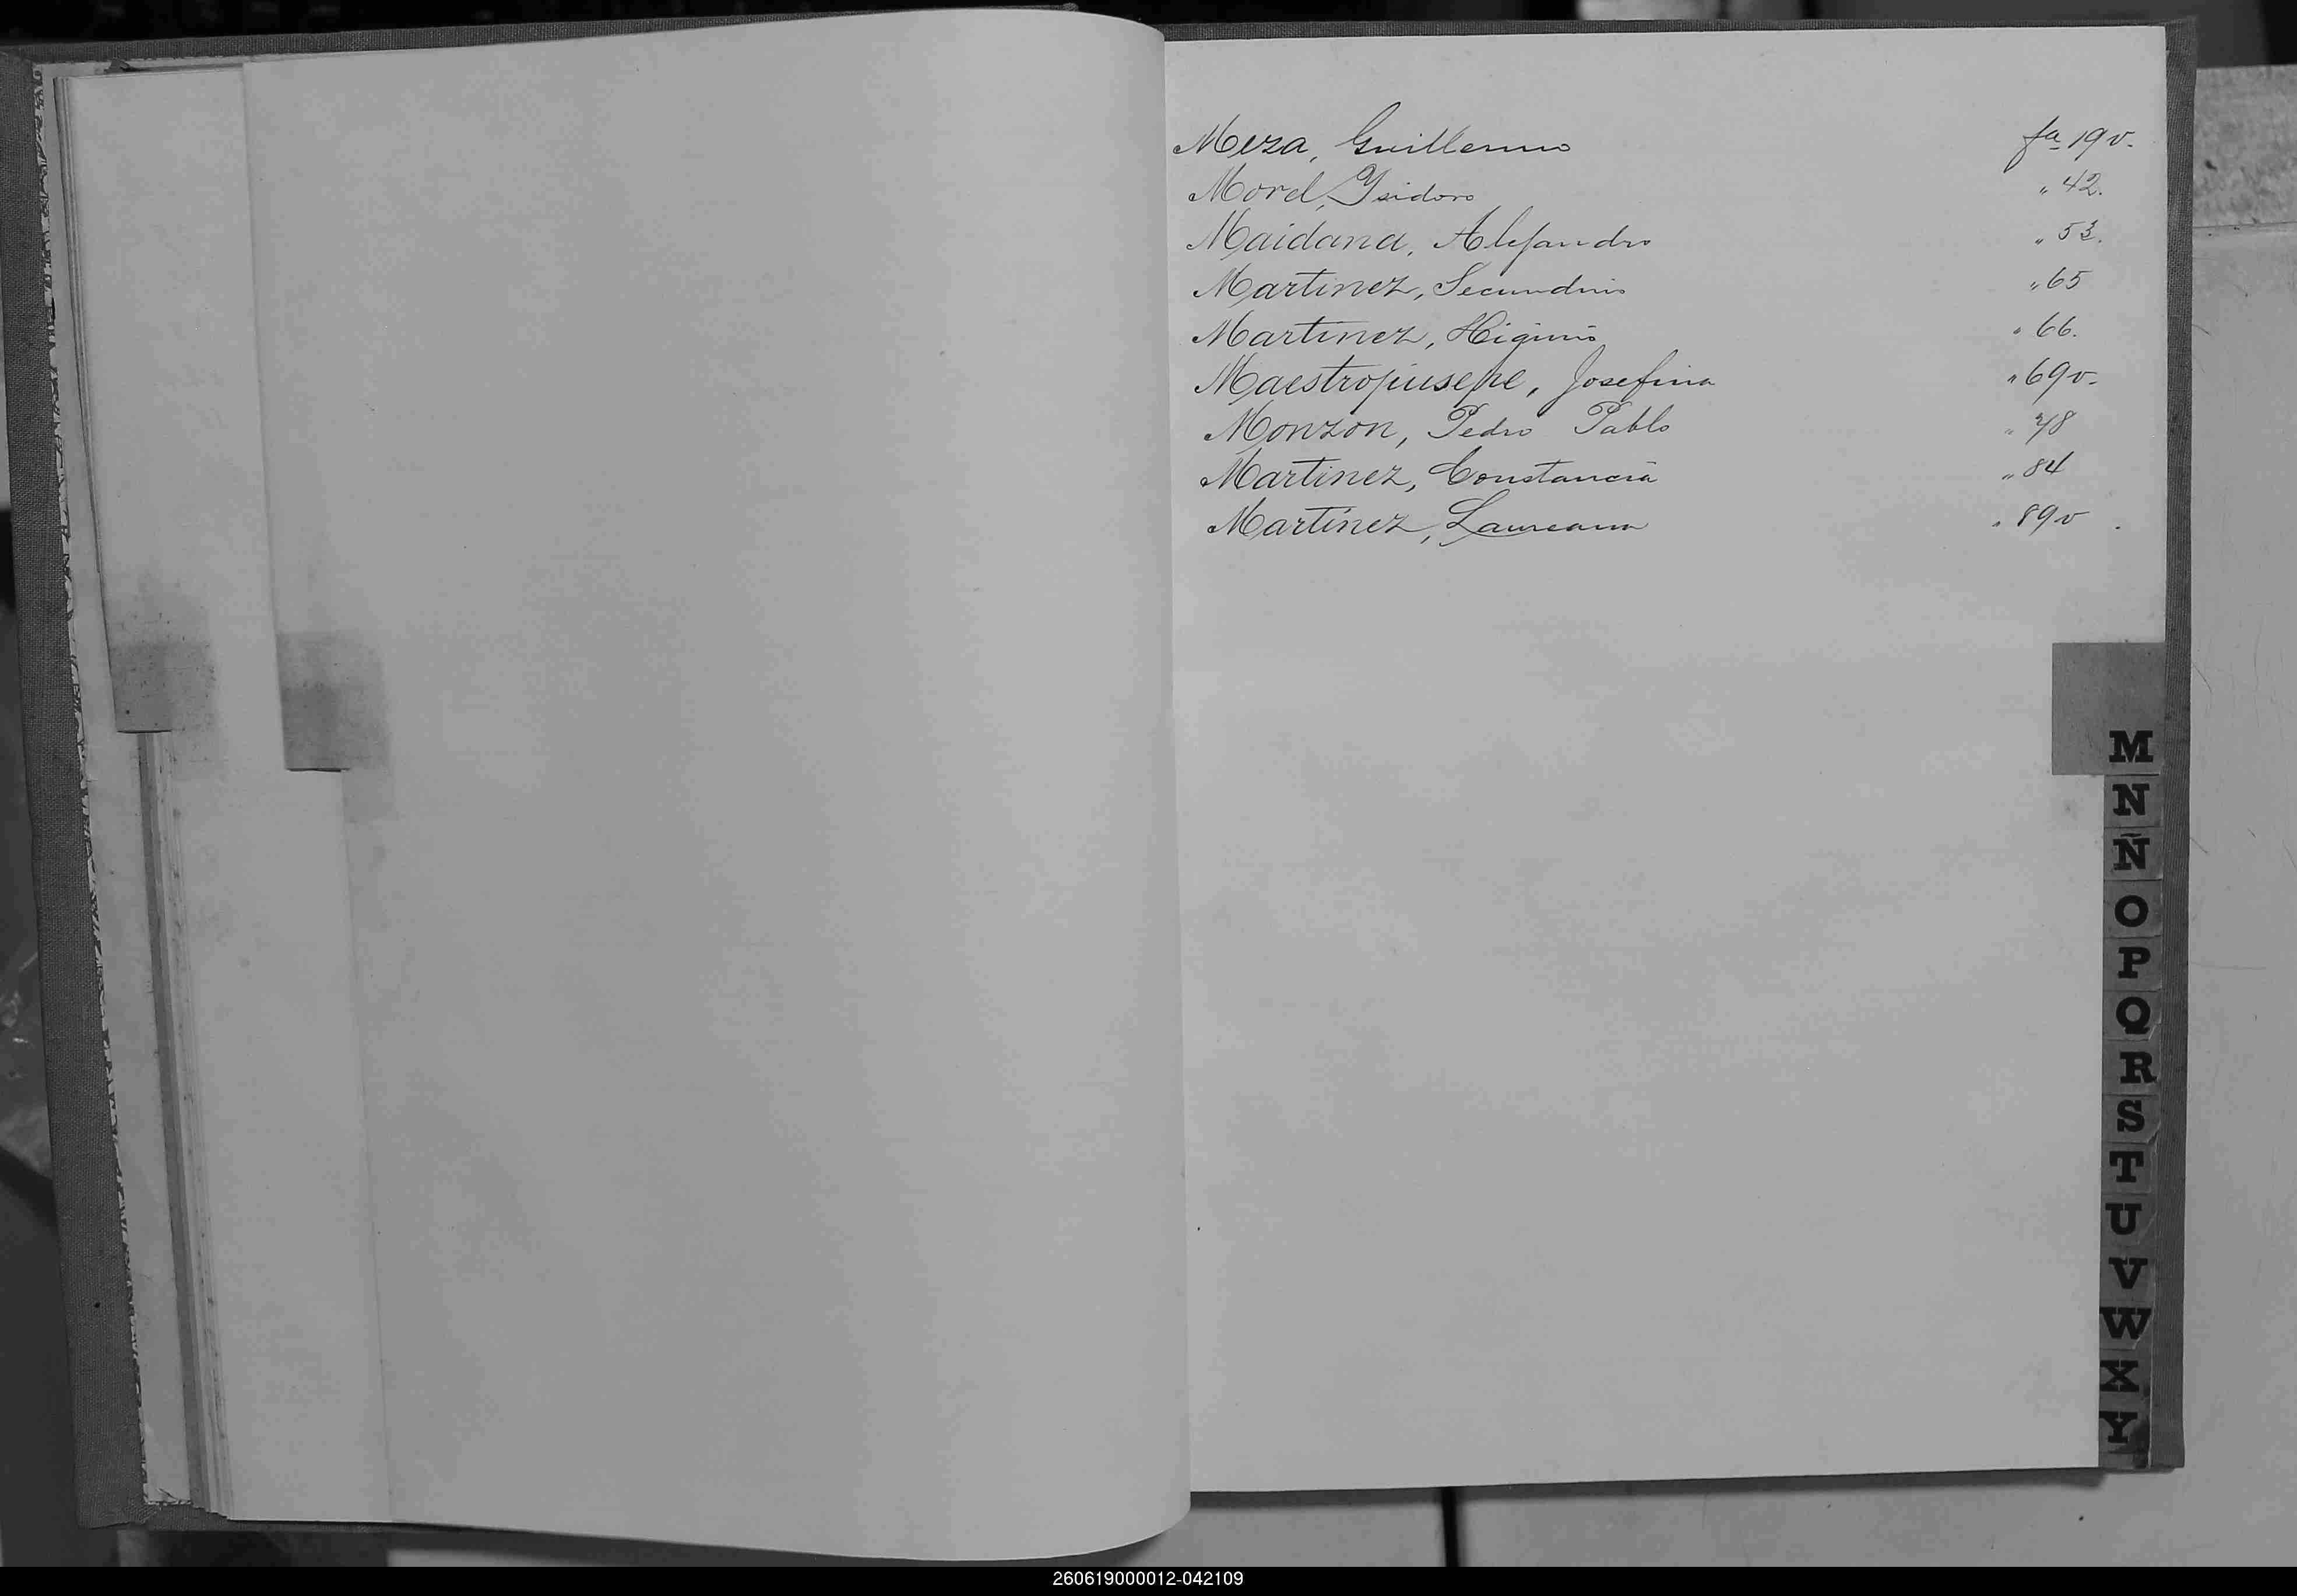 Meza, Guillermo fa 19 v.
Morel, Ysidoro " 42.
Maidana, Alejandro " 53.
Martinez, Secundino " 65
Martinez, Higinio " 66.
Maestrojiusepe, Josefina " 69 v.
Monzon, Pedro Pablo " 78
Martinez, Constancia " 84
Martinez, Laureana " 89 v
M
N
Ñ
O
P
Q
R
S
T
U
V
W
X
Y
260619000012-042109